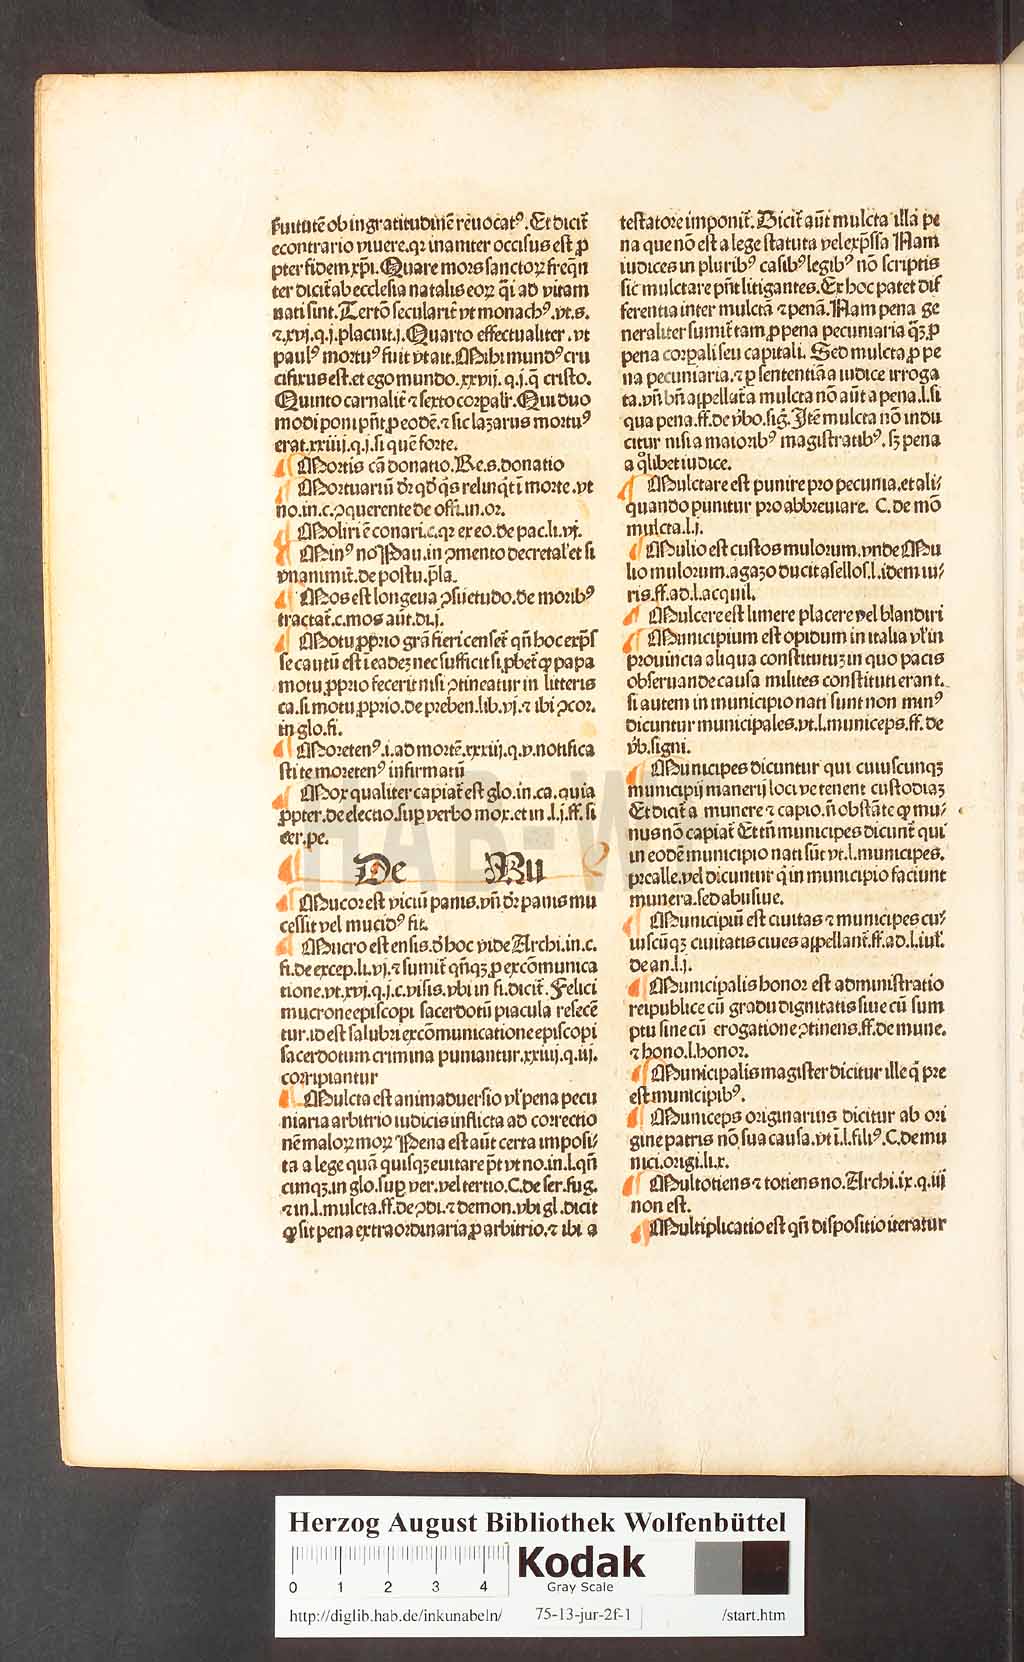 ẜuitutē ob ingratitudinē reuocatꝰ. Et dicit̄
econtrario viuere. qꝛ inaniter occisus est ꝓ
pter fidem xp̄i. Quare mors sanctoꝝ freq̄n
ter dicit̄ ab ecclesia natalis eoꝝ q̄i ad vitam
nati sint. Tertō seculariter̄ vt monachꝰ. vt. s.
⁊. xvj. q. j. placuit. j. Quarto effectualiter. vt
paulꝰ mortuꝰ fuit vt ait. Mihi mundꝰ cru
cifixus est. et ego mundo. xxvij. q. j. q̄ cristo.
Quinto carnalit̄ ⁊ sexto corpalr̄. Qui duo
modi poni pn̄t ꝓ eodē. ⁊ sic lazarus mortuꝰ
erat. xxiiij. q. j. si quē forte.
Mortis cā donatio. Re. s. donatio
Mortuariū dr̄ qd̓ q̓s relinqt̄ ī morte. vt
no. in. c. ꝯquerente de offi. in. or.
Moliri ē conari. c. qꝛ ex eo. de pac. li. vj.
Minꝰ no Pau. in ꝯmento decretal̓ et si
vnanimit̄. de postu. p̄la.
Mos est longeua ꝯsuetudo. de moribꝰ
tractat̄. c. mos aūt. di. j.
Motu ꝓprio grā fieri censet̄ qn̄ hoc exp̄s
se cautū est ī eadeꝫ nec sufficit si ꝓbet̄ ꝙ papa
motu ꝓprio fecerit nisi ꝯtineatur in litteris
ca. si motu ꝓprio. de preben. lib. vj. ⁊ ibi ꝯcor.
in glo. fi.
Moretenꝰ. i. ad mortē. xxxiij. q. v. notifica
sti te moretenꝰ infirmatū
Mox qualiter capiat̄ est glo. in. ca. quia
ꝓpter. de electio. suꝑ verbo mox. et in. l. j. ff. si
cer. pe.
De Mu
Mucor est viciū panis. vn̄ dr̄ panis mu
cessit vel mucidꝰ fit.
Mucro est ensis. d̓ hoc vide Archi. in. c.
fi. de excep. li. vj. ⁊ sumit̄ qn̄qꝫ ꝓ excōmunica
tione. vt. xvj. q. j. c. visis. vbi in fi. dicit̄. Felici
mucrone episcopi sacerdotū piacula resecē
tur. id est salubri excōmunicatione episcopi
sacerdotum crimina puniantur. xxiiij. q. iij.
corripiantur
Mulcta est animaduersio vl̓ pena pecu
niaria arbitrio iudicis inflicta ad correctio
nē maloꝝ moꝝ Pena est aūt certa imposi⸗
ta a lege quā quisqꝫ euitare pt̄ vt no. in. l. qn̄
cunqꝫ. in glo. suꝑ ver. vel tertio. C. de ser. fug.
⁊ in. l. mulcta. ff. de ꝯdi. ⁊ demon. vbi gl. dicit
ꝙ sit pena extraordinaria ꝓ arbitrio. ⁊ ibi a
testatore imponit̄. Dicit̄ aūt mulcta illa pe
na que nō est a lege statuta vel exp̄ssa Nam
iudices in pluribꝰ casibꝰ legibꝰ nō scriptis
sic mulctare pn̄t litigantes. Ex hoc patet dif
ferentia inter mulctā ⁊ penā. Nam pena ge
neraliter sumit̄ tam ꝓ pena pecuniaria q̄ꝫ ꝓ
pena corpali seu capitali. Sed mulcta ꝓ pe
na pecuniaria. ⁊ ꝑ sententiā a iudice irroga
ta. vn̄ bn̄ appellat̄ a mulcta nō aūt a pena. l. si
qua pena. ff. de v̓bo. sig. Itē mulcta nō indu
citur nisi a maioribꝰ magistratibꝰ. sꝫ pena
a q̊libet iudice.
Mulctare est punire pro pecunia. et ali⸗
quando punitur pro abbreuiare. C. de mō
mulcta. l. j.
Mulio est custos mulorum. vnde Mu
lio mulorum. agazo ducit asellos. l. idem iu⸗
ris. ff. ad. l. acquil.
Mulcere est linere placere vel blandiri
Municipium est opidum in italia vl̓ in
prouincia aliqua constitutuꝫ in quo pacis
obseruande causa milites constituti erant.
si autem in municipio nati sunt non minꝰ
dicuntur municipales. vt. l. municeps. ff. de
v̓b. signi.
Municipes dicuntur qui cuiuscunqꝫ
municipij manerij loci ve tenent custodiaꝫ
Et dicit̄ a munere ⁊ capio. n̄ obstāte ꝙ mu⸗
nus nō capiat̄ Et tn̄ municipes dicunt̄ qui
in eodē municipio nati sūt vt. l. municipes.
preallе. vel dicuntur q̄ in municipio faciunt
munera. sed abusiue.
Municipiū est ciuitas ⁊ municipes cu⸗
iuscūqꝫ ciuitatis ciues appellant̄. ff. ad. l. iul̓.
de an. l. j.
Municipalis honor est administratio
reipublice cū gradu dignitatis siue cū sum
ptu sine cū erogatione ꝯtinens. ff. de mune.
⁊ hono. l. honor.
Municipalis magister dicitur ille q̄ pre
est municipibꝰ.
Municeps originarius dicitur ab ori
gine patris nō sua causa. vt ī. l. filiꝰ. C. de mu
nici. origi. li. x.
Multotiens ⁊ totiens no. Archi. ix. q. iij
non est.
Multiplicatio est qn̄ dispositio iteratur
HAB-W
Herzog August Bibliothek Wolfenbüttel
0 1 2 3 4
Kodak
Gray Scale
http://diglib.hab.de/inkunabeln/ 75-13-jur-2f-1 /start.htm